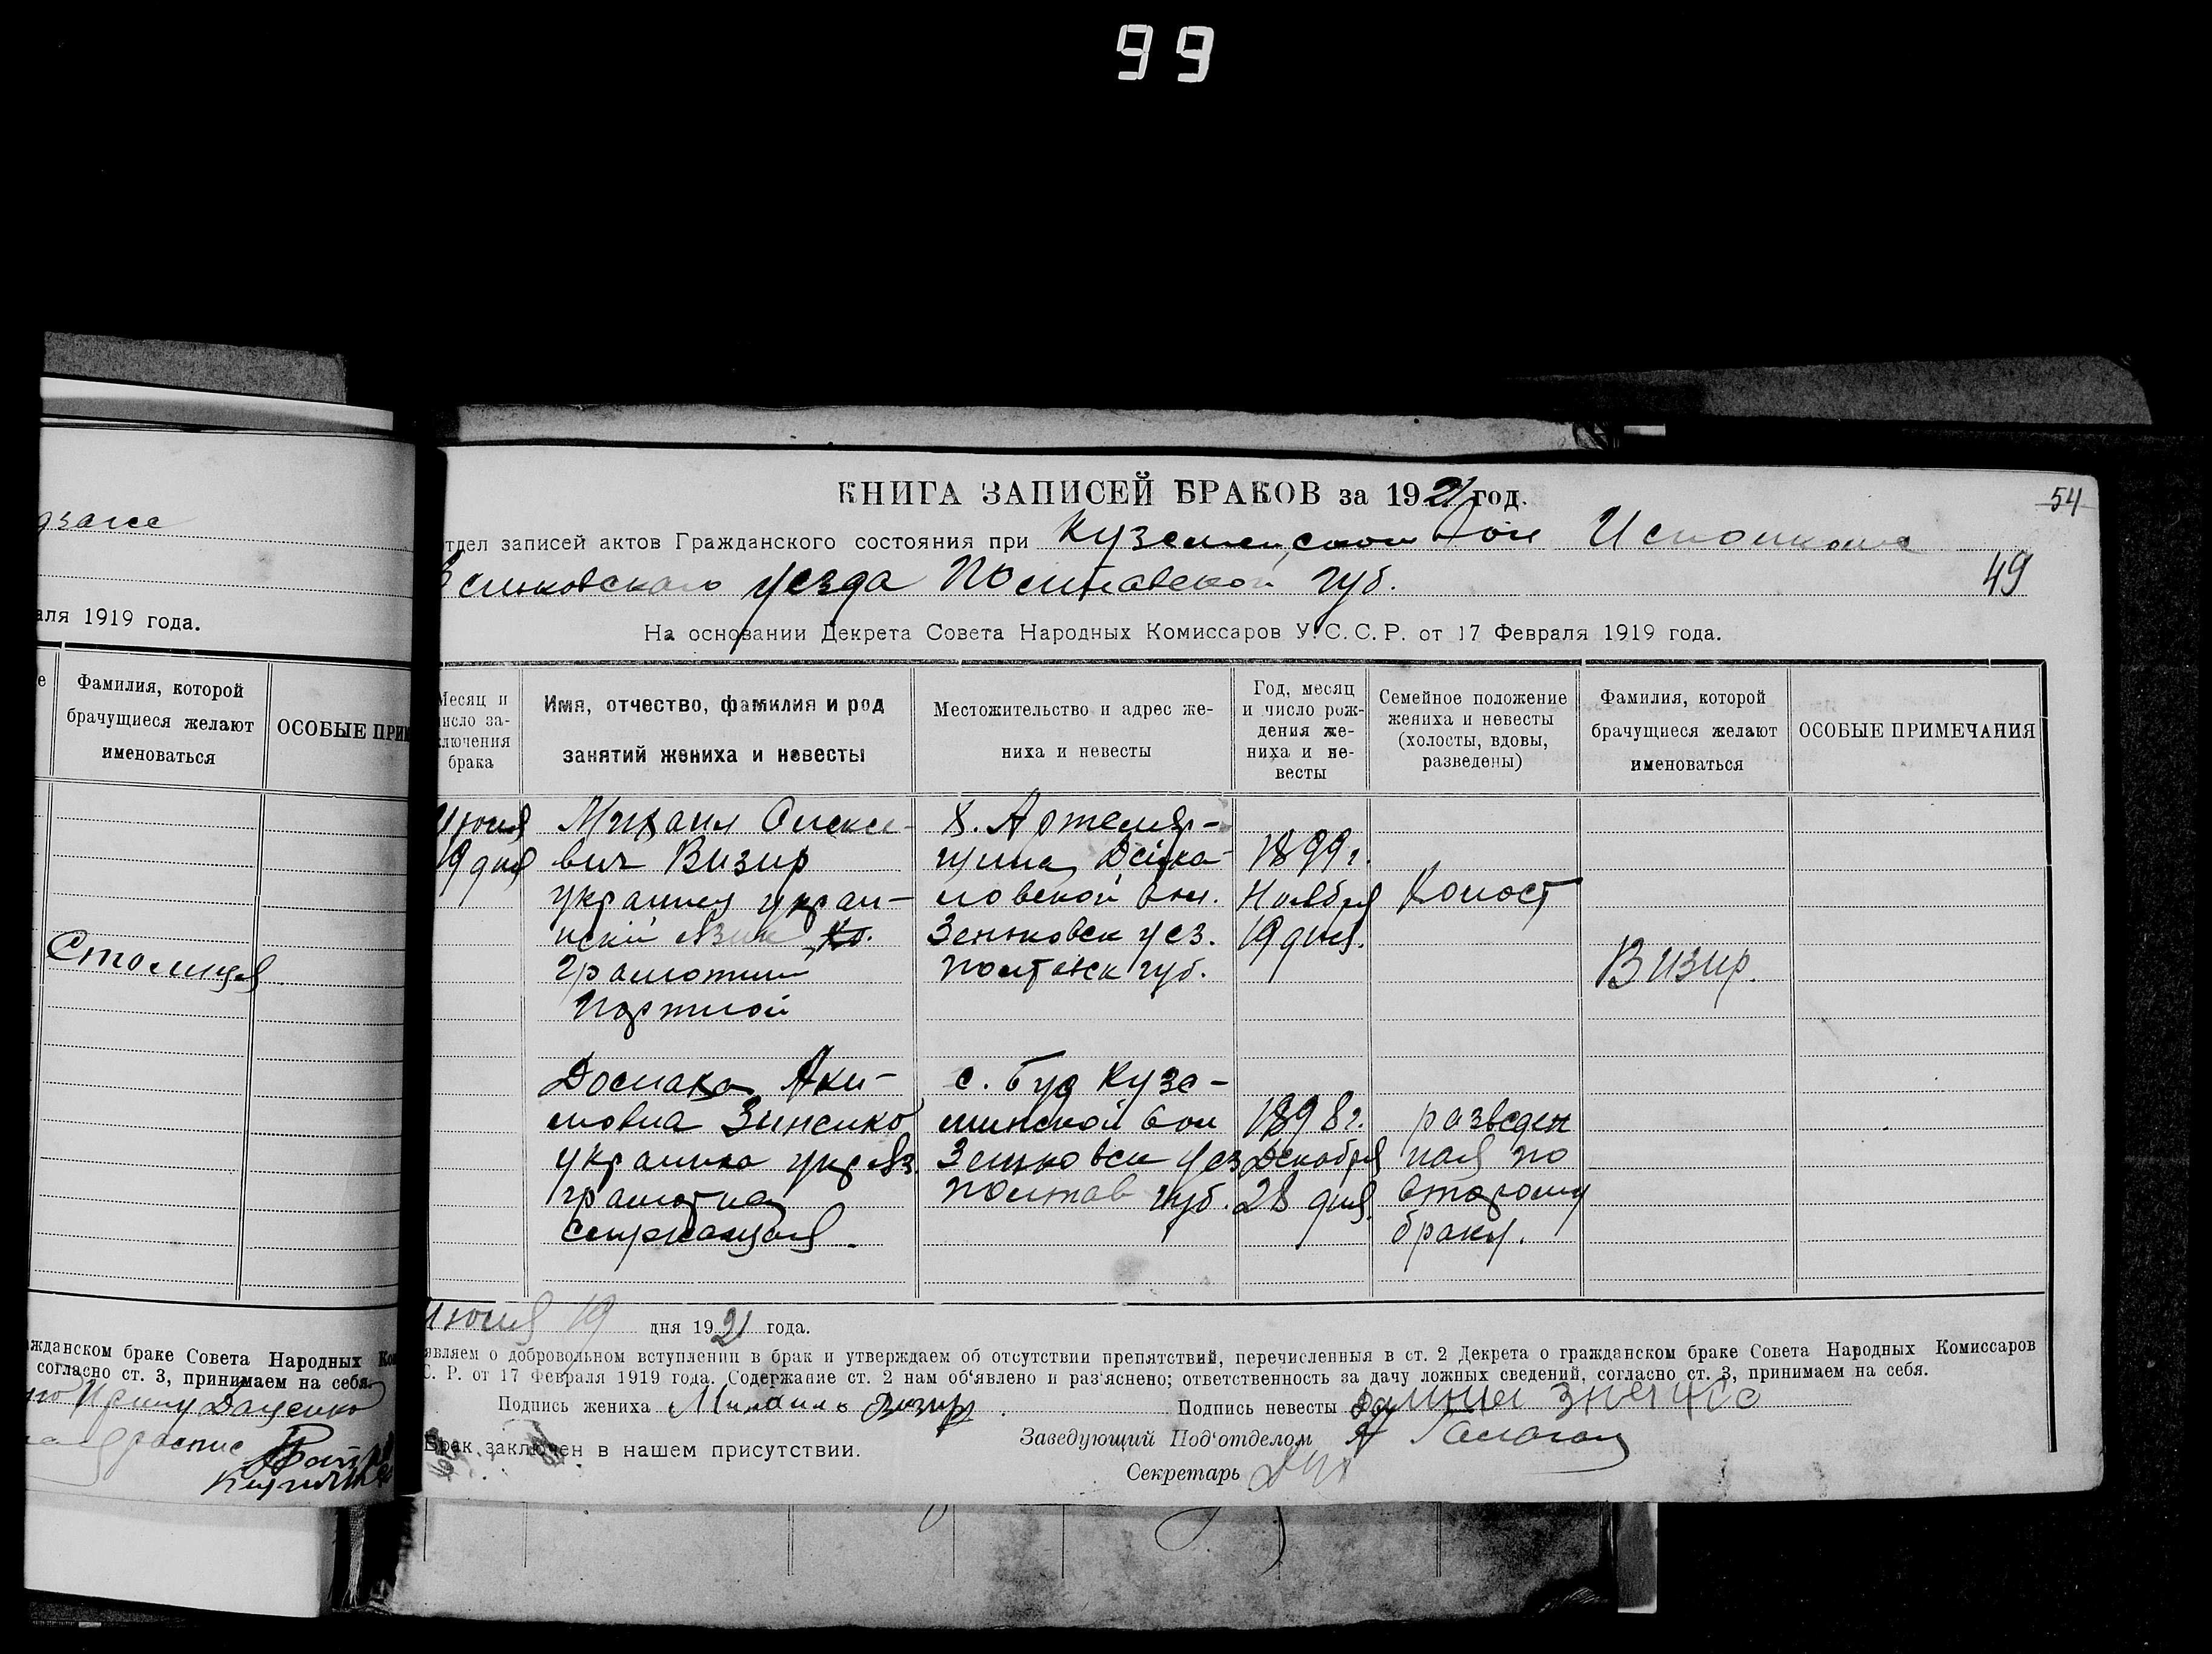 99
дзапсе
аля 1919 года.
е
Фамилия, которой
брачущиеся желают
именоваться
ОСОБЫЕ ПРИМ
Столиця
жданском браке Совета Народных Ко
согласно ст. 3, принимаем на себя.
Ирину Даценко
распис
КНИГА ЗАПИСЕЙ БРАКОВ за 1921 год.
54
тдел записей актов Гражданского состояния при Куземенском Вол Исполкоме
Зеньковского уезда Полтавской губ.
49
На основании Декрета Совета Народных Комиссаров У.С.С.Р. от 17 Февраля 1919 года.
Месяц и
число за-
ключения
брака
Имя, отчество, фамилия и род
занятий жениха и невесты
Местожительство и адрес же-
ниха и невесты
Год, месяц
и число рож-
дения же-
ниха и не-
весты
Семейное положение
жениха и невесты
(холосты, вдовы,
разведены)
Фамилия, которой
брачущиеся желают
именоваться
ОСОБЫЕ ПРИМЕЧАНИЯ
Июня
19 дня
Михаил Алексе-
вич Визир
украинец украи-
нский язик
грамотний
портной
Х. Артемяр-
щина
ловской вол.
Зеньковск уез.
Полтавск губ.
1899 г.
Ноября
19 дня.
Холост
Визир.
Домаха Аки-
мовна Зиненко
украинка укр яз.
грамотная
служащая.
с. Буд Кузе-
минской вол
Зеньковск уез
Полтав губ.
1898 г.
Декабря
28 дня.
разведен
ная по
второму
браку.
Июня 19 дня 1921 года.
являем о добровольном вступлении в брак и утверждаем об отсутствии препятствий, перечисленныя в ст. 2 Декрета о гражданском браке Совета Народных Комиссаров
С. Р. от 17 Февраля 1919 года. Содержание ст. 2 нам об'явлено и раз'яснено; ответственность за дачу ложных сведений, согласно ст. 3, принимаем на себя.
Подпись жениха Михаилъ Визир.
Подпись невесты
Брак заключен в нашем присутствии.
Заведующий Под'отделом
Секретарь